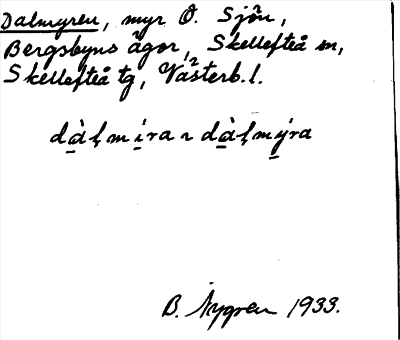 Dalmyren, myr Ö. Sjön,
Bergsbyns ägor, Skellefteå sn,
Skellefteå tg, Västerb. l.
dàl̥mi̱ra ~ dàl̥mýra
B. Nygren 1933.